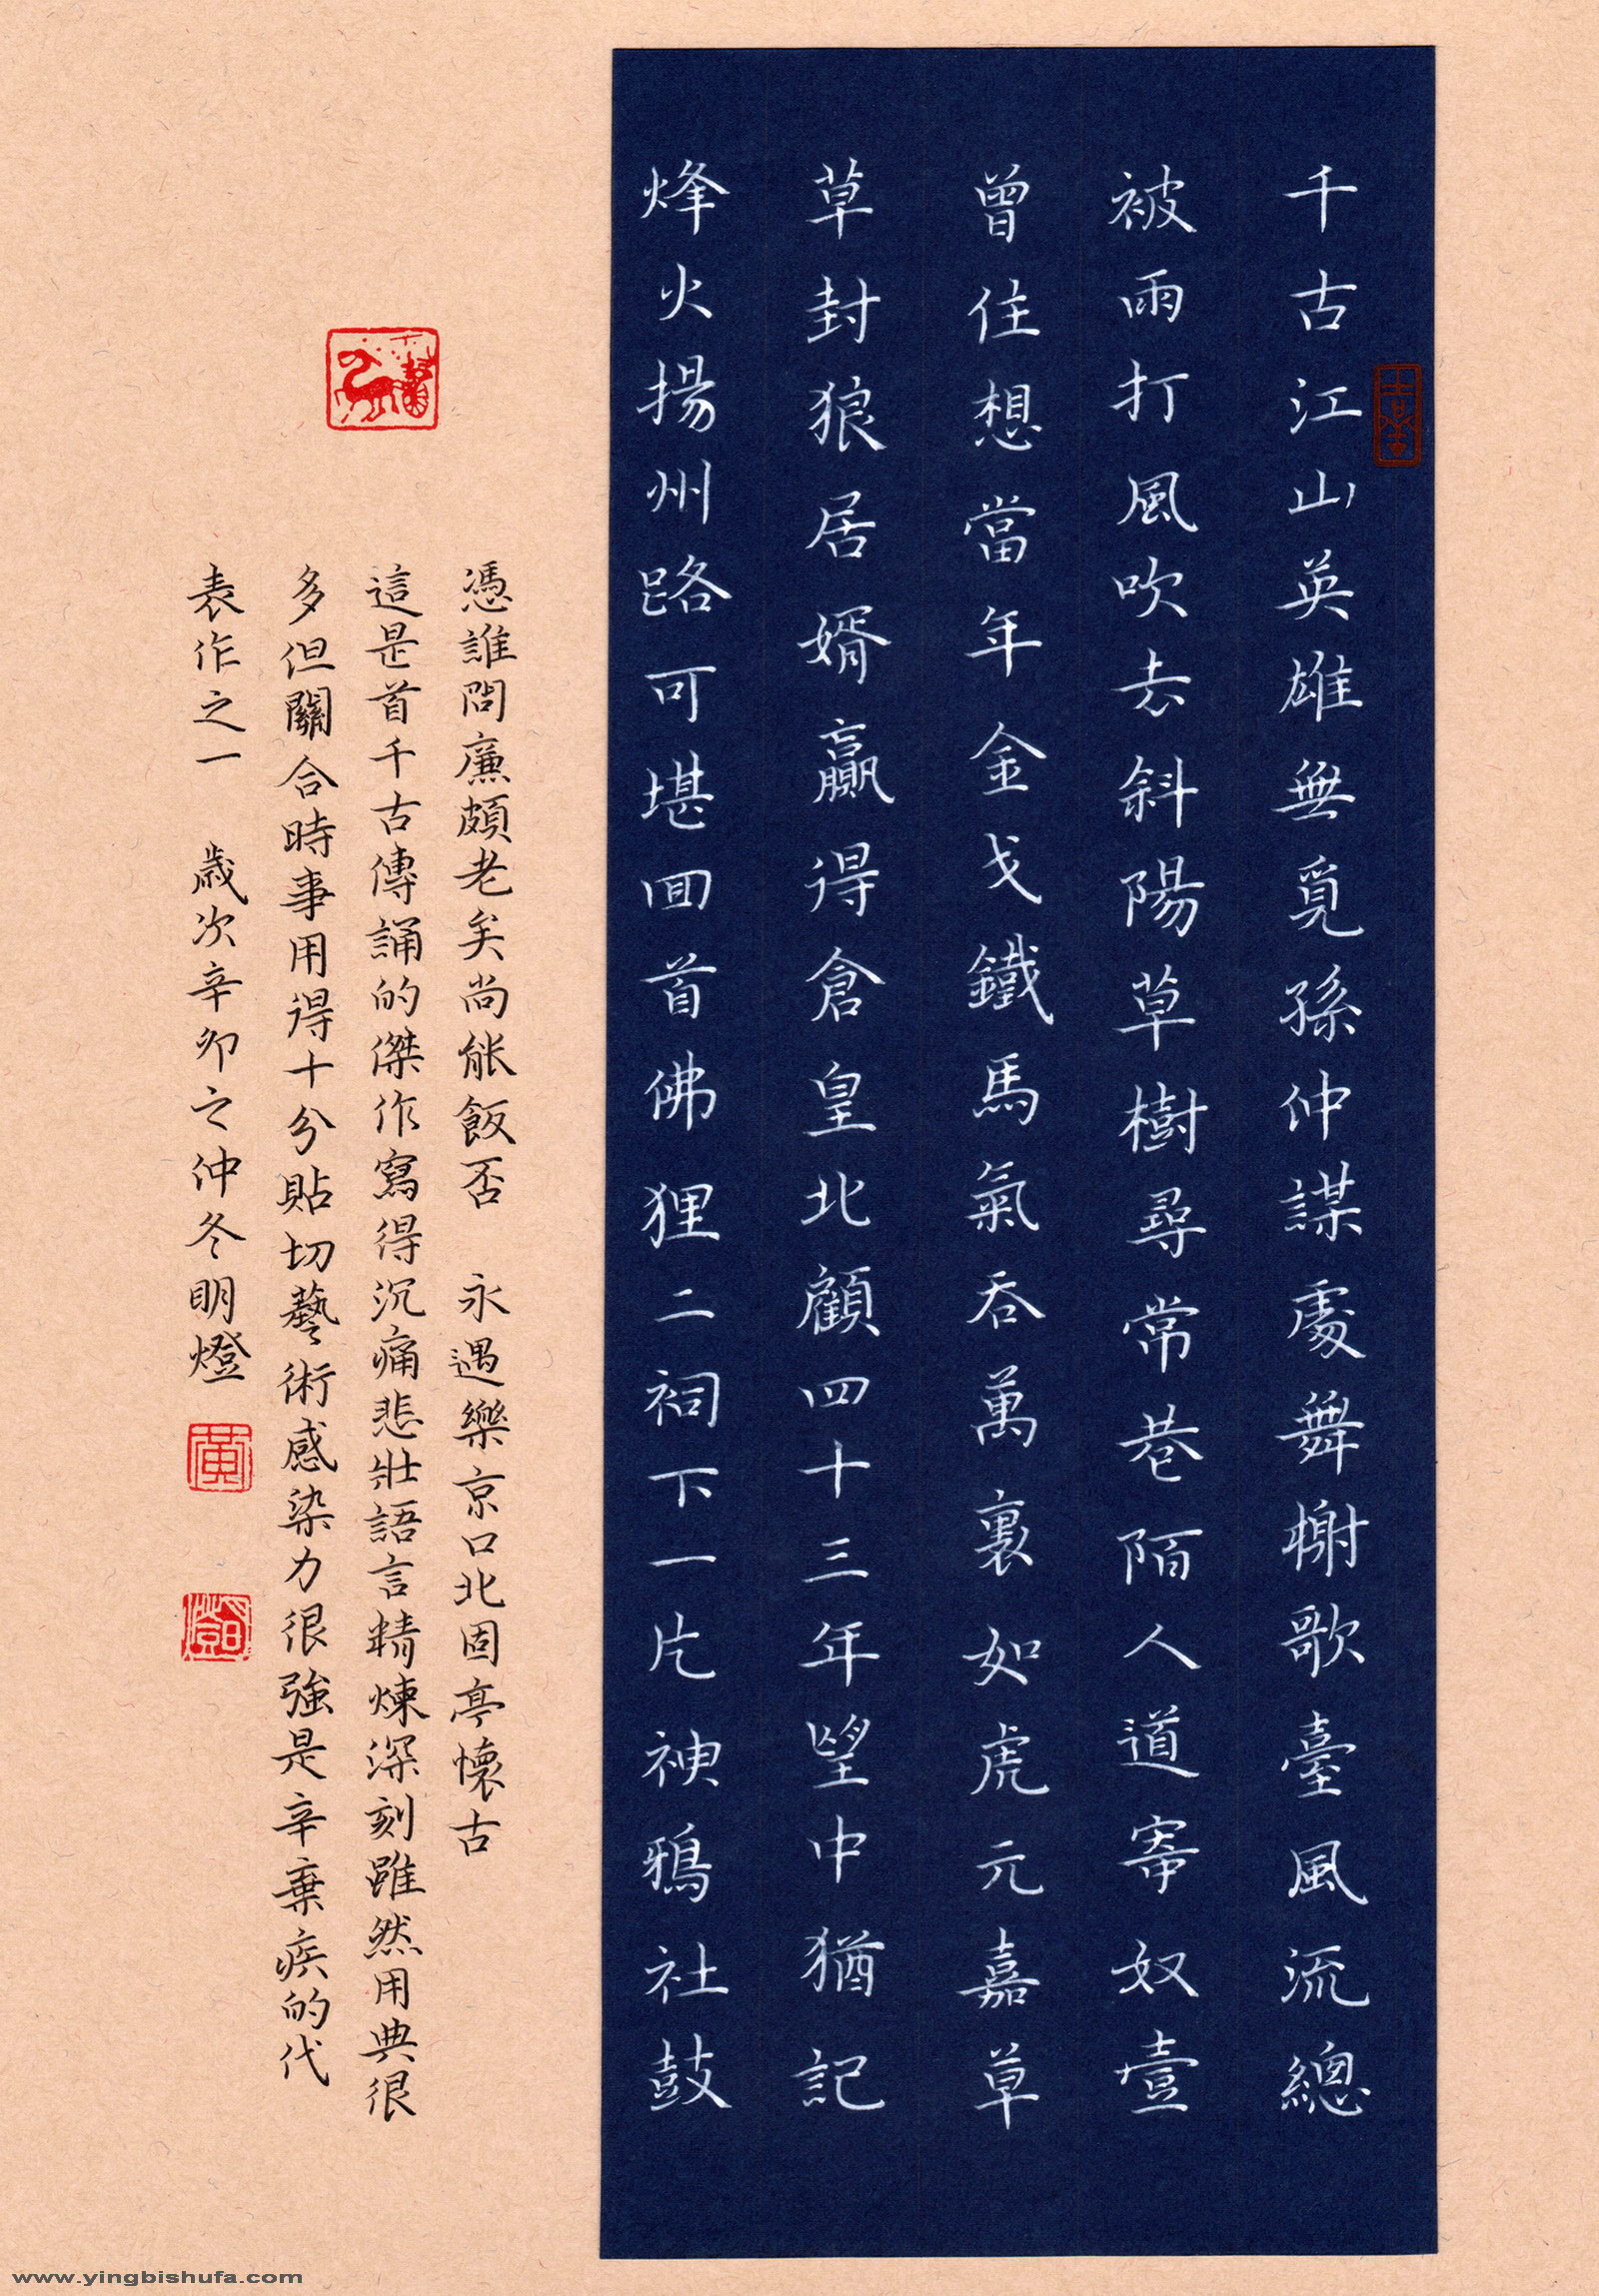 千古江山英雄無覓孫仲謀處舞榭歌臺風流總
被雨打風吹去斜陽草樹尋常巷陌人道寄奴壹
曾住想當年金戈鐵馬氣吞萬裏如虎元嘉草
草封狼居婿贏得倉皇北顧四十三年望中猶記
烽火揚州路可堪回首佛狸二祠下一片神鴉社鼓
憑誰問廉頗老矣尚能飯否 永遇樂京口北固亭懷古
這是首千古傳誦的傑作寫得沉痛悲壯語言精煉深刻雖然用典很
多但關合時事用得十分貼切藝術感染力很強是辛棄疾的代
表作之一 歲次辛卯之仲冬明燈
黃
www.yingbishufa.com